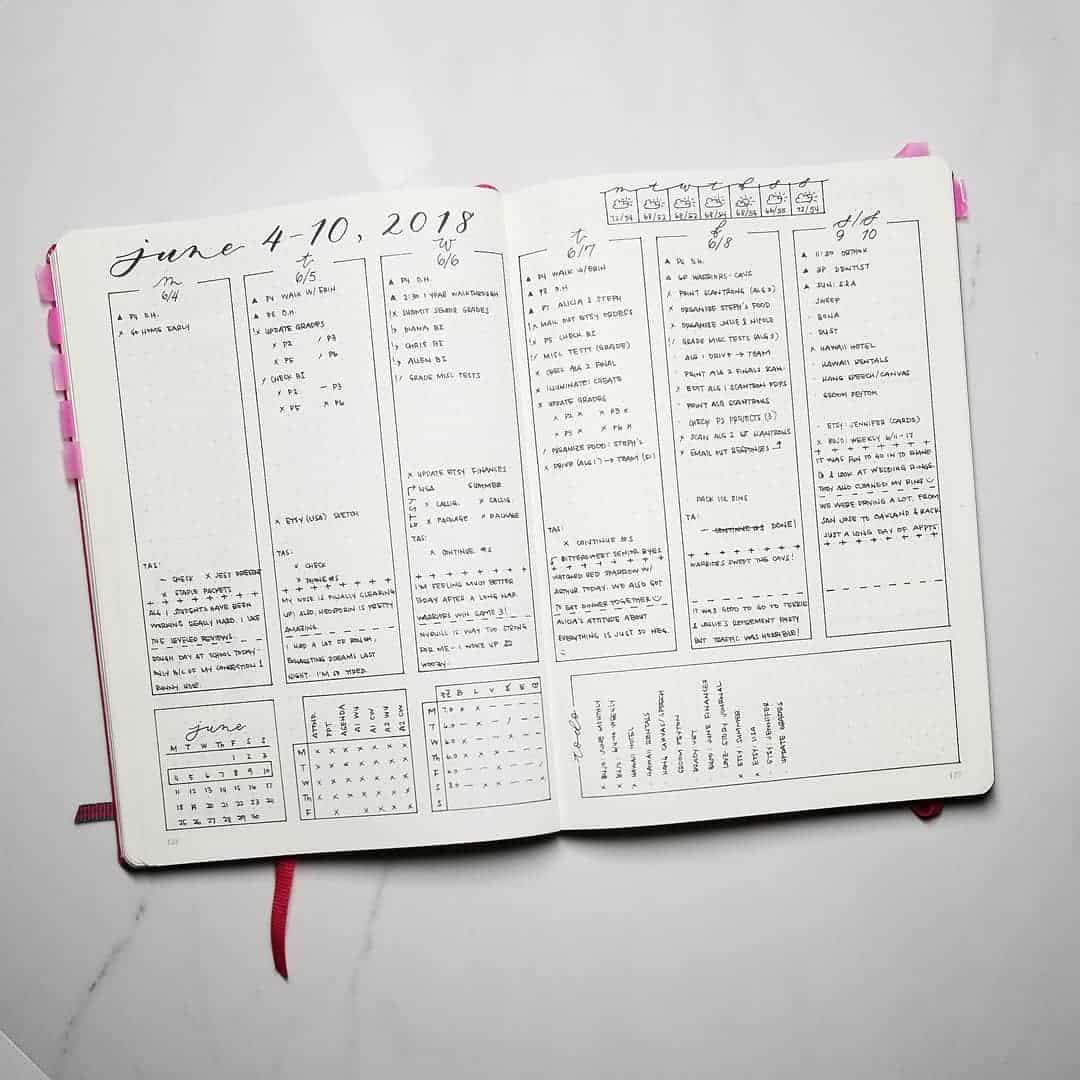 june 4-10, 2018
m t w t f s s
72/54 68/52 68/52 68/54 68/54 66/55 72/54
m
6/4
▲ P4 D.H.
x GO HOME EARLY
TAS:
— CHECK x JEST DIFFERENT
x STAPLE PACKETS
ALG 1 STUDENTS HAVE BEEN
WORKING REALLY HARD. I LIKE
THE LEVELED REVIEWS.
ROUGH DAY AT SCHOOL TODAY-
ONLY B/C OF MY CONGESTION &
RUNNY NOSE.
t
6/5
▲ P4 WALK W/ ERIN
▲ P8 D.H.
!x UPDATE GRADES
x P2 / P3
x P5 / P6
/ CHECK BI
x P2 — P3
x P5 x P6
x ETSY (USA) SKETCH
TAS:
x CHECK
x PHONE #S
MY NOSE IS FINALLY CLEARING
UP! ALSO, NEOSPORIN IS PRETTY
AMAZING.
I HAD A LOT OF ROUGH,
EXHAUSTING DREAMS LAST
NIGHT. I'M SO TIRED.
w
6/6
▲ P4 D.H.
▲ 2:30 1 YEAR WALKTHROUGH
!x SUBMIT SENIOR GRADES
!> DIANA BI
!> CHRIS BI
!> ALLEN BI
!/ GRADE MISC TESTS
x UPDATE ETSY FINANCES
USA SUMMER
ETSY
x CALLIG. x CALLIG.
x PACKAGE x PACKAGE
TAS:
x CONTINUE #S
I'M FEELING MUCH BETTER
TODAY AFTER A LONG NAP.
WARRIORS WIN GAME 3!
NYQUIL IS WAY TOO STRONG
FOR ME - I WOKE UP SO
WOOZY.
t
6/17
▲ P4 WALK W/ ERIN
▲ P8 D.H.
▲ P7 ALICIA & STEPH
!x MAIL OUT ETSY ORDERS
!x P5 CHECK BI
!/ MISC TESTS (GRADE)
x CRES ALG 2 FINAL
x ILLUMINATE: CREATE
x UPDATE GRADES
x P2 x x P3 x
x P5 x x P6 x
/ ORGANIZE FOOD: STEPH'S
x DRIVE (ALG 1) → TEAM
TAS:
x CONTINUE #S
BITTERSWEET SENIOR BYES
WATCHED RED SPARROW W/
ARTHUR TODAY. WE ALSO GOT
TO EAT DINNER TOGETHER
ALICIA'S ATTITUDE ABOUT
EVERYTHING IS JUST SO NEG.
f
6/8
▲ P2 D.H.
▲ 6P WARRIORS-CAVS
x PRINT SCANTRONS (ALG 2)
x ORGANIZE STEPH'S FOOD
x ORGANIZE JULIE & NICOLE
!/ GRADE MISC TESTS (ALG 2)
· ALG 1 DRIVE → TEAM
· PRINT ALG 2 FINALS
x EDIT ALG 1 SCANTRON PDFS
· PRINT ALG SCANTRONS
· CHECK P2 PROJECTS (3)
x SCAN ALG 2 SCANTRONS
x EMAIL OUT RESPONSES
· PACK ICE RINK
TA:
— CONTINUE #S DONE!
WARRIORS SWEPT THE CAVS!
IT WAS GOOD TO GO TO TERRIE
& JULIE'S RETIREMENT PARTY
BUT TRAFFIC WAS HORRIBLE!
s/s
9 10
▲ 11:30 ORTHOK
▲ 2P DENTIST
▲ SUN:
· SWEEP
· BONA
· DUST
x HAWAII HOTEL
· HAWAII RENTALS
· HANG SPEECH/CANVAS
· GROOM PEYTON
· ETSY: JENNIFER (CARDS)
x BUJO: WEEKLY 6/11-17
IT WAS FUN TO GO IN TO SHANE
CO & LOOK AT WEDDING RINGS.
THEY ALSO CLEANED MY RING
WE WERE DRIVING A LOT, FROM
SAN JOSE TO OAKLAND & BACK.
JUST A LONG DAY OF APPTS.
june
M T W Th F S S
1 2 3
4 5 6 7 8 9 10
11 12 13 14 15 16 17
18 19 20 21 22 23 24
25 26 27 28 29 30
ATTND PDT AGENDA A1 WU A1 CW A2 WU A2 CW
M x x x x x x x
T x x x x x x x
W x x x x x x x
Th x x x x x x x
F x x x x x
B L V
M 7.0 x x
T 6.0
W 6.0
Th 6.0
F 6.0
S 8.0
S
todo
x BUJO: JUNE MONTHLY
x BUJO: 6/4-10 WEEKLY
x HAWAII HOTEL
· HAWAII RENTALS
· HANG CANVAS/SPEECH
· GROOM PEYTON
· BRADY VET
· BUJO: JUNE FINANCES
· LOVE STORY JOURNAL
x ETSY: SUMMER
x ETSY: USA
· ETSY: JENNIFER
· UPDATE GRADES
127